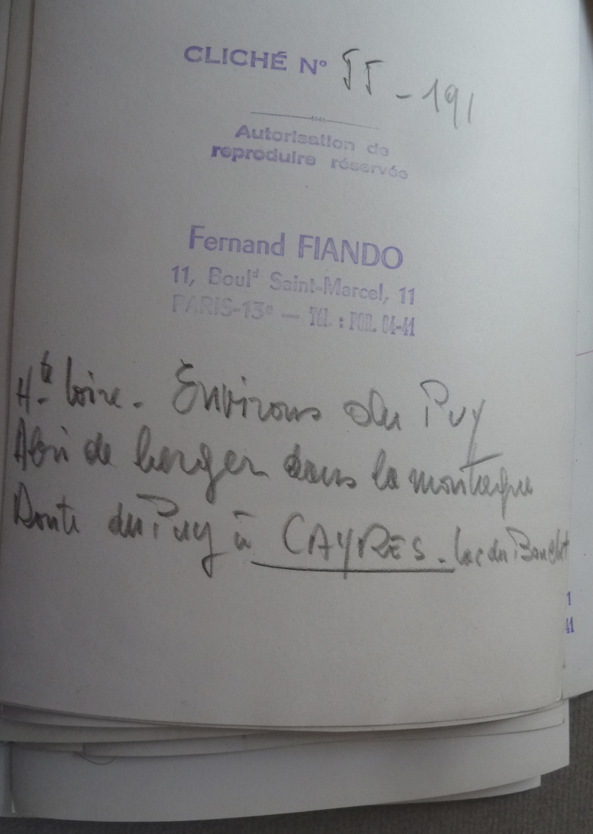 CLICHÉ N° JJ - 191
Autorisation de
reproduire réservée
Fernand FIANDO
11, Boulᵈ Saint-Marcel, 11
PARIS-13ᵉ — Tél. :
Hᵗᵉ Loire - Environs du Puy
Abri de berger dans la montagne
Route du Puy à CAYRES - lac du Bouchet